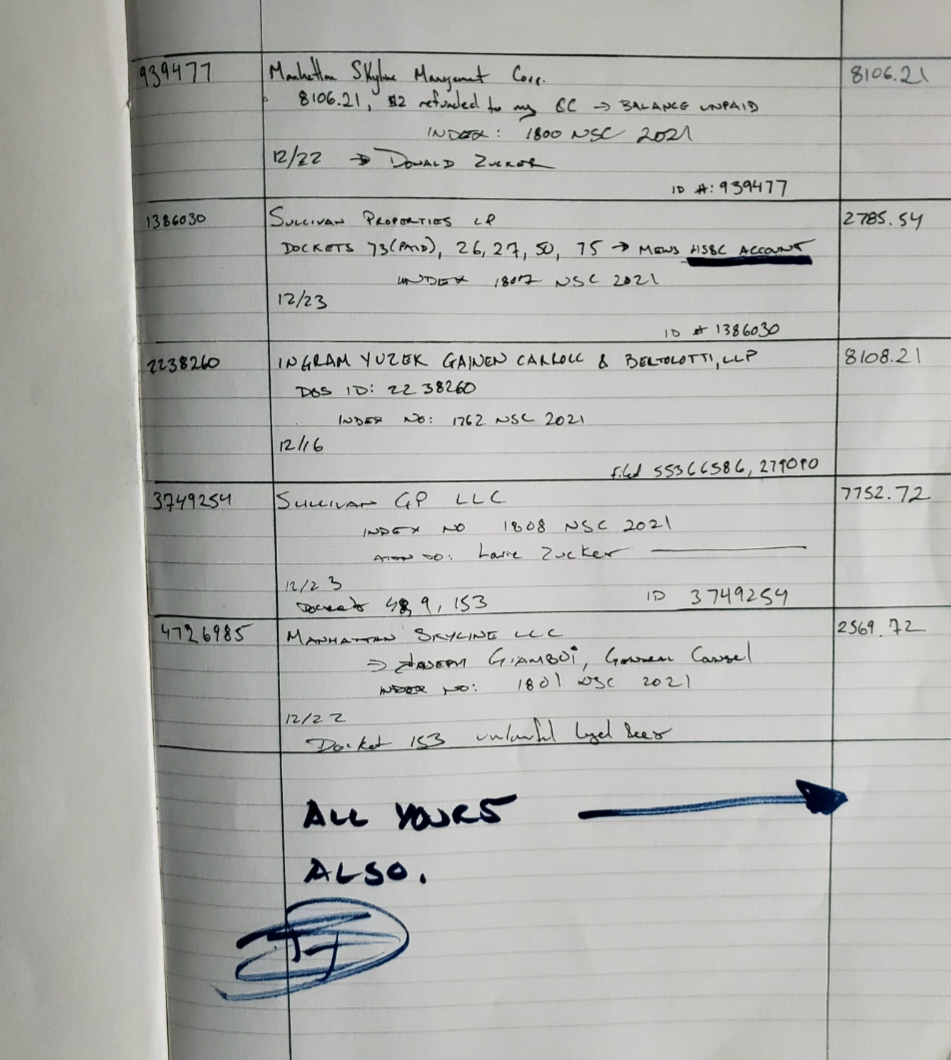 939477 Manhattan Skyline Management Corp. 8106.21
8106.21, $2 refunded to my CC → BALANCE UNPAID
INDEX: 1800 NSC 2021
12/22 → DONALD ZUCKER
ID #: 939477
1386030 SULLIVAN PROPERTIES LP 2785.54
DOCKETS 73(PAID), 26, 27, 50, 75 → MEWS HSBC ACCOUNT
INDEX 1807 NSC 2021
12/23
ID # 1386030
2238260 INGRAM YUZEK GAINEN CARROLL & BERTOLOTTI, LLP 8108.21
DOS ID: 2238260
INDEX NO: 1762 NSC 2021
12/16
filed 55366586, 279090
3749254 SULLIVAN GP LLC 7752.72
INDEX NO 1808 NSC 2021
Laurie Zucker
12/23
Dockets 9, 153 ID 3749254
4726985 MANHATTAN SKYLINE LLC 2569.72
⇒ JOSEPH GIAMBOI, General Counsel
INDEX NO: 1801 NSC 2021
12/22
Docket 153 unlawful legal fees
ALL YOURS →
ALSO.